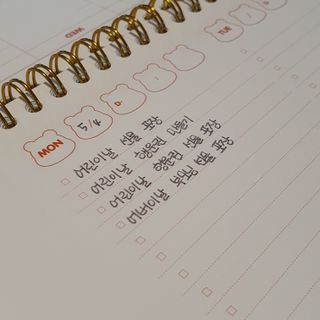 WED
TUE
D-
MON 5/4 D-
어린이날 선물 포장
어린이날 행운권 만들기
어린이날 행운권 선물 포장
어버이날 부모님 선물 포장